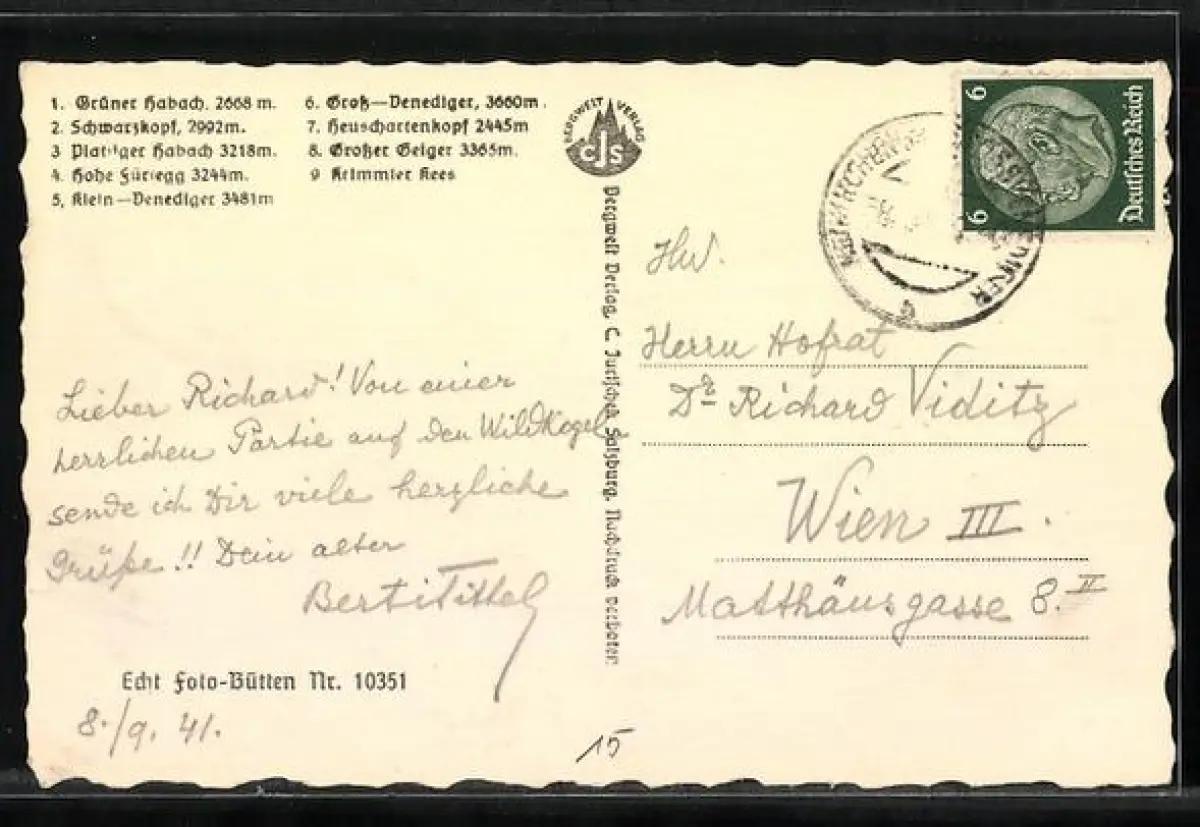 1. Grüner Habach. 2668 m.
2. Schwarzkopf, 2992m.
3 Plattiger Habach 3218m.
4. Hohe Fürlegg 3244m.
5, Klein—Venediger 3481m
6. Groß—Venediger, 3660m.
7. Heuschartenkopf 2445m
8. Großer Geiger 3365m.
9 Krimmler Kees
BERGWELT VERLAG
CJS
Bergwelt Verlag, C. Jurischek, Salzburg. Nachdruck verboten.
6
6
Deutsches Reich
Hw.
Herrn Hofrat
Dr Richard Viditz
Wien III.
Matthäusgasse 8.II
Lieber Richard! Von einer
herrlichen Partie auf den Wildkogel
sende ich Dir viele herzliche
Grüße!! Dein alter
Berti Tittel
Echt Foto-Bütten Nr. 10351
8./9. 41.
15